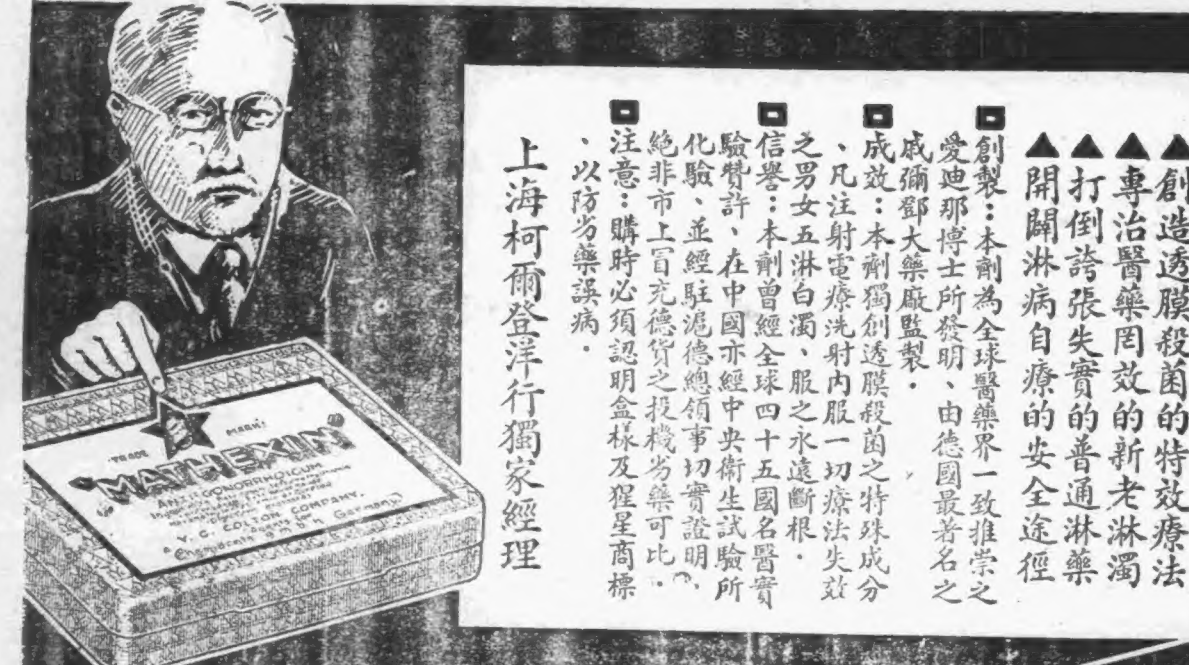 ▲創造透膜殺菌的特效療法
▲專治醫藥罔效的新老淋濁
▲打倒誇張失實的普通淋藥
▲開闢淋病自療的安全途徑
創製：本劑為全球醫藥界一致推崇之
愛迪那博士所發明、由德國最著名之
戚彌鄧大藥廠監製．
成效：本劑獨創透膜殺菌之特殊成分
、凡注射電療洗射內服一切療法失效
之男女五淋白濁、服之永遠斷根．
信譽：本劑曾經全球四十五國名醫實
驗贊許、在中國亦經中央衛生試驗所
化驗、並經駐滬德總領事切實證明、
絕非市上冒充德貨之投機劣藥可比．
注意：購時必須認明盒樣及猩星商標
、以防劣藥誤病．
上海柯爾登洋行獨家經理
TRADE MARK
"MATHEXIN"
ANTIGONORRHOICUM
V. G. COLTON COMPANY.
Germany